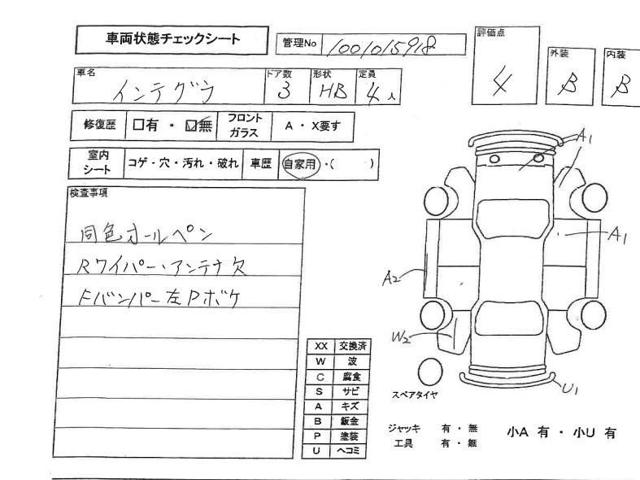 車両状態チェックシート
管理No 1001015918
評価点 4
外装 B
内装 B
車名 インテグラ
ドア数 3
形状 HB
定員 4人
修復歴 □有・☑無
フロントガラス A・X要す
室内シート コゲ・穴・汚れ・破れ
車歴 自家用・( )
検査事項
同色オールペン
Rワイパー・アンテナ欠
Fバンパー左Pボケ
A1
A1
A2
W2
U1
XX 交換済
W 波
C 腐食
S サビ
A キズ
B 鈑金
P 塗装
U ヘコミ
スペアタイヤ
ジャッキ 有・無
工具 有・無
小A 有・小U 有